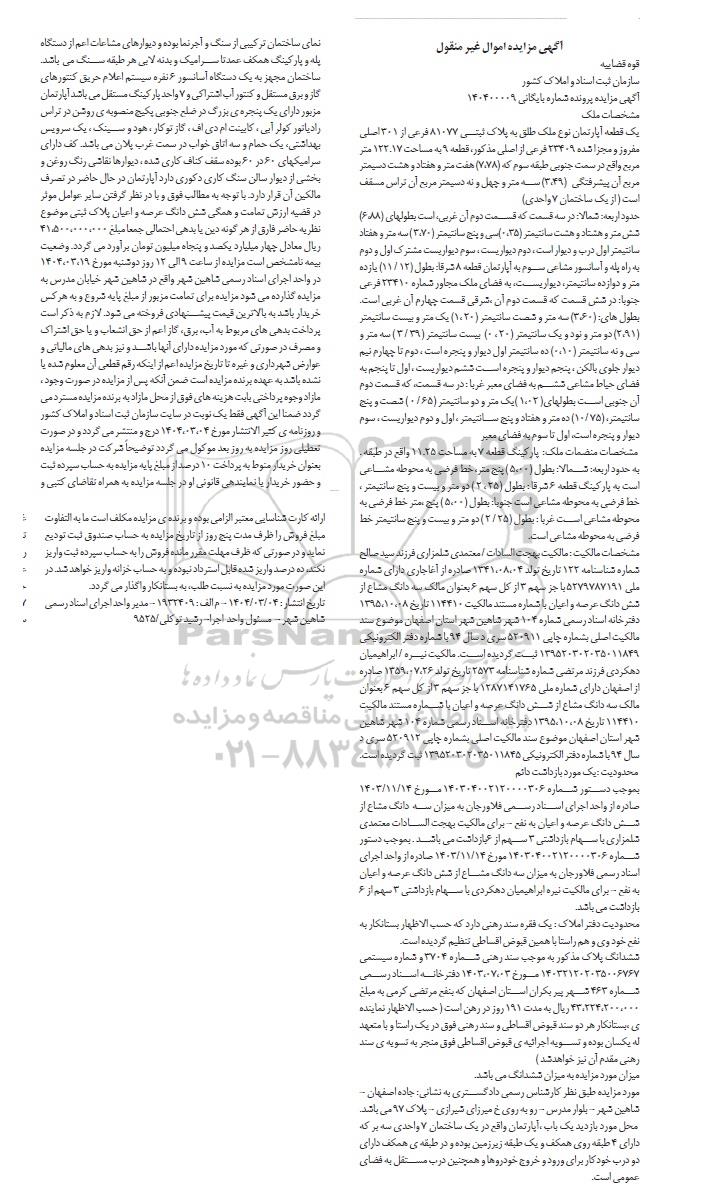 آگهی مزایده اموال غیر منقول
قوه قضاییه
سازمان ثبت اسناد و املاک کشور
آگهی مزایده پرونده شماره بایگانی ۱۴۰۴۰۰۰۰۹
مشخصات ملک
یک قطعه آپارتمان نوع ملک طلق به پلاک ثبتی ۸۱۰۷۷ فرعی از ۳۰۱ اصلی
مفروز و مجزا شده ۲۳۴۰۹ فرعی از اصلی مذکور، قطعه ۹ به مساحت ۱۲۲.۱۷ متر
مربع واقع در سمت جنوبی طبقه سوم که (۷،۷۸) هفت متر و هفتاد و هشت دسیمتر
مربع آن پیشرفتگی (۳،۴۹) سه متر و چهل و نه دسیمتر مربع آن تراس مسقف
است ( از یک ساختمان ۷ واحدی)
حدود اربعه: شمالا: در سه قسمت که قسمت دوم آن غربی است، بطولهای (۶.۸۸)
شش متر و هشتاد و هشت سانتیمتر (۰،۳۵) سی و پنج سانتیمتر (۳،۷۰) سه متر و هفتاد
سانتیمتر اول درب و دیوار است، دوم دیواریست ، سوم دیواریست مشترک اول و دوم
به راه پله و آسانسور مشاعی سوم به آپارتمان قطعه ۸ شرقا: بطول (۱۲ / ۱۱) یازده
متر و دوازده سانتیمتر، دیواریست، به فضای ملک مجاور شماره ۲۳۴۱۰ فرعی
جنوبا: در شش قسمت که قسمت دوم آن ،شرقی قسمت چهارم آن غربی است.
بطول های: (۳،۶۰) سه متر و شصت سانتیمتر (۱،۲۰) یک متر و بیست سانتیمتر
(۲،۹۱) دو متر و نود و یک سانتیمتر (۲۰ ، ۰) بیست سانتیمتر (۳۹ / ۳) سه متر و
سی و نه سانتیمتر (۰،۱۰) ده سانتیمتر اول دیوار و پنجره است ، دوم تا چهارم نیم
دیوار جلوی بالکن ، پنجم دیوار و پنجره است ششم دیواریست ، اول تا پنجم به
فضای حیاط مشاعی ششم به فضای معبر غربا : در سه قسمت، که قسمت دوم
آن جنوبی است بطولهای( ۱،۰۲ )یک متر و دو سانتیمتر (۶۵ / ۰) شصت و پنج
سانتیمتر، (۷۵ / ۱۰) ده متر و هفتاد و پنج سانتیمتر ، اول و دوم دیواریست ، سوم
دیوار و پنجره است، اول تا سوم به فضای معبر
مشخصات منضمات ملک: پارکینگ قطعه ۷ به مساحت ۱۱.۲۵ واقع در طبقه .
به حدود اربعه: شمالا: بطول (۵،۰۰) پنج متر، خط فرضی به محوطه مشاعی
است به پارکینگ قطعه ۶ شرقا : بطول (۲۵ ، ۲ ) دو متر و بیست و پنج سانتیمتر ،
خط فرضی به محوطه مشاعی است جنوبا: بطول (۵،۰۰) پنج ،متر خط فرضی به
محوطه مشاعی است غربا : بطول (۲۵ / ۲) دو متر و بیست و پنج سانتیمتر خط
فرضی به محوطه مشاعی است.
مشخصات مالکیت : مالکیت بهجت السادات / معتمدی شلمزاری فرزند سید صالح
شماره شناسنامه ۱۲۲ تاریخ تولد ۱۳۴۱.۰۸.۰۴ صادره از آغاجاری دارای شماره
ملی ۵۲۷۹۷۸۷۱۹۱ با جز سهم ۳ از کل سهم ۶ بعنوان مالک سه دانگ مشاع از
شش دانگ عرصه و اعیان با شماره مستند مالکیت ۱۱۴۴۱۰ تاریخ ۱۳۹۵.۱۰.۰۸
دفترخانه اسناد رسمی شماره ۱۰۴ شهر شاهین شهر استان اصفهان موضوع سند
مالکیت اصلی بشماره چاپی ۵۲۰۹۱۱ سری د سال ۹۴ با شماره دفتر الکترونیکی
۱۳۹۵۲۰۳۰۲۰۳۵۰۱۱۸۴۹ ثبت گردیده است. مالکیت نیره / ابراهیمیان
دهکردی فرزند مرتضی شماره شناسنامه ۲۵۷۳ تاریخ تولد ۱۳۵۹.۰۷.۲۶ صادره
از اصفهان دارای شماره ملی ۱۲۸۷۱۴۱۷۶۵ با جز سهم ۳ از کل سهم ۶ بعنوان
مالک سه دانگ مشاع از شش دانگ عرصه و اعیان با شماره مستند مالکیت
۱۱۴۴۱۰ تاریخ ۱۳۹۵.۱۰.۰۸ دفترخانه اسناد رسمی شماره ۱۰۴ شهر شاهین
شهر استان اصفهان موضوع سند مالکیت اصلی بشماره چاپی ۵۲۰۹۱۲ سری د
سال ۹۴ با شماره دفتر الکترونیکی ۱۳۹۵۲۰۳۰۲۰۳۵۰۱۱۸۴۵ ثبت گردیده است.
محدودیت :یک مورد بازداشت دائم
بموجب دستور شماره ۱۴۰۳۰۴۰۰۲۱۲۰۰۰۰۳۰۶ مورخ ۱۴۰۳/۱۱/۱۴
صادره از واحد اجرای اسناد رسمی فلاورجان به میزان سه دانگ مشاع از
شش دانگ عرصه و اعیان به نفع - برای مالکیت بهجت السادات معتمدی
شلمزاری با سهام بازداشتی ۳ سهم از ۶ بازداشت می باشد . بموجب دستور
شماره ۱۴۰۳۰۴۰۰۲۱۲۰۰۰۰۳۰۶ مورخ ۱۴۰۳/۱۱/۱۴ صادره از واحد اجرای
اسناد رسمی فلاورجان به میزان سه دانگ مشاع از شش دانگ عرصه و اعیان
به نفع - برای مالکیت نیره ابراهیمیان دهکردی با سهام بازداشتی ۳ سهم از ۶
بازداشت می باشد.
محدودیت دفتر املاک : یک فقره سند رهنی دارد که حسب الاظهار بستانکار به
نفع خود وی و هم راستا با همین قبوض اقساطی تنظیم گردیده است.
ششدانگ پلاک مذکور به موجب سند رهنی شماره ۳۷۰۴ و شماره سیستمی
۱۴۰۳۲۱۲۰۲۰۳۵۰۰۶۷۶۷ مورخ ۱۴۰۳.۰۷.۰۳ دفترخانه اسناد رسمی
شماره ۴۶۳ شهر پیر بکران استان اصفهان که بنفع مرتضی کرمی به مبلغ
۴۳،۲۲۴،۲۰۰،۰۰۰ ریال به مدت ۱۹۱ روز در رهن است ( حسب الاظهار نماینده
ی ،بستانکار هر دو سند قبوض اقساطی و سند رهنی فوق در یک راستا و با متعهد
له یکسان بوده و تسویه اجرائیه ی قبوض اقساطی فوق منجر به تسویه ی سند
رهنی مقدم آن نیز خواهد شد )
میزان مورد مزایده به میزان ششدانگ می باشد.
مورد مزایده طبق نظر کارشناس رسمی دادگستری به نشانی: جاده اصفهان -
شاهین شهر - بلوار مدرس - رو به روی خ میرزای شیرازی - پلاک ۹۷ می باشد.
محل مورد بازدید یک باب ،آپارتمان واقع در یک ساختمان ۷ واحدی سه بر که
دارای ۴ طبقه روی همکف و یک طبقه زیرزمین بوده و در طبقه ی همکف دارای
دو درب خودکار برای ورود و خروج خودروها و همچنین درب مستقل به فضای
عمومی است.
نمای ساختمان ترکیبی از سنگ و آجرنما بوده و دیوارهای مشاعات اعم از دستگاه
پله و پارکینگ همکف عمدتا سرامیک و بدنه لابی هر طبقه سنگ می باشد.
ساختمان مجهز به یک دستگاه آسانسور ۶ نفره سیستم اعلام حریق کنتورهای
گاز و برق مستقل و کنتور آب اشتراکی و ۷ واحد پارکینگ مستقل می باشد آپارتمان
مزبور دارای یک پنجره ی بزرگ در ضلع جنوبی پکیج منصوبه ی روشن در تراس
رادیاتور کولر آبی ، کابینت ام دی اف ، گاز توکار ، هود و سینک ، یک سرویس
بهداشتی، یک حمام و سه اتاق خواب در سمت غرب پلان می باشد. کف دارای
سرامیکهای ۶۰ در ۶۰ بوده سقف کناف کاری شده ، دیوارها نقاشی رنگ روغن و
بخشی از دیوار سالن سنگ کاری دکوری دارد آپارتمان در حال حاضر در تصرف
مالکین آن قرار دارد. با توجه به مطالب فوق و با در نظر گرفتن سایر عوامل موثر
در قضیه ارزش تمامت و همگی شش دانگ عرصه و اعیان پلاک ثبتی موضوع
نظریه حاضر فارق از هر گونه دین یا بدهی احتمالی جمعا مبلغ ۴۱،۵۰۰،۰۰۰،۰۰۰
ریال معادل چهار میلیارد یکصد و پنجاه میلیون تومان برآورد می گردد. وضعیت
بیمه نامشخص است مزایده از ساعت ۹ الی ۱۲ روز دوشنبه مورخ ۱۴۰۴.۰۳.۱۹
در واحد اجرای اسناد رسمی شاهین شهر واقع در شاهین شهر خیابان مدرس به
مزایده گذارده می شود مزایده برای تمامت مزبور از مبلغ پایه شروع و به هر کس
خریدار باشد به بالاترین قیمت پیشنهادی فروخته می شود. لازم به ذکر است
پرداخت بدهی های مربوط به آب، برق، گاز اعم از حق انشعاب و یا حق اشتراک
و مصرف در صورتی که مورد مزایده دارای آنها باشد و نیز بدهی های مالیاتی و
عوارض شهرداری و غیره تا تاریخ مزایده اعم از اینکه رقم قطعی آن معلوم شده یا
نشده باشد به عهده برنده مزایده است ضمن آنکه پس از مزایده در صورت وجود ،
مازاد وجوه پرداختی بابت هزینه های فوق از محل مازاد به برنده مزایده مسترد می
گردد ضمنا این آگهی فقط یک نوبت در سایت سازمان ثبت اسناد و املاک کشور
و روزنامه ی کثیر الانتشار مورخ ۱۴۰۴.۰۳.۰۴ درج و منتشر می گردد و در صورت
تعطیلی روز مزایده به روز بعد موکول می گردد توضیحاً شرکت در جلسه مزایده
بعنوان خریدار منوط به پرداخت ۱۰ درصد از مبلغ پایه مزایده به حساب سپرده ثبت
و حضور خریدار یا نماینده‌ی قانونی او در جلسه مزایده به همراه تقاضای کتبی و
ارائه کارت شناسایی معتبر الزامی بوده و برنده ی مزایده مکلف است ما به التفاوت
مبلغ فروش را ظرف مدت پنج روز از تاریخ مزایده به حساب صندوق ثبت تودیع
نماید و در صورتی که ظرف مهلت مقرر مانده فروش را به حساب سپرده ثبت واریز
نکند، ده درصد واریز شده قابل استرداد نبوده و به حساب خزانه واریز خواهد شد. در
این صورت مورد مزایده به نسبت طلب، به بستانکار واگذار می گردد.
تاریخ انتشار : ۱۴۰۴/۰۳/۰۴ - م الف : ۱۹۳۲۴۰۹ - مدیر واحد اجرای اسناد رسمی
شاهین شهر - مسئول واحد اجرا - رشید توکلی /۹۵۲۵
ParsNamadData
پایگاه اطلاع رسانی مناقصه و مزایده
۰۲۱-۸۸۳۴۹۶۷۰-۵